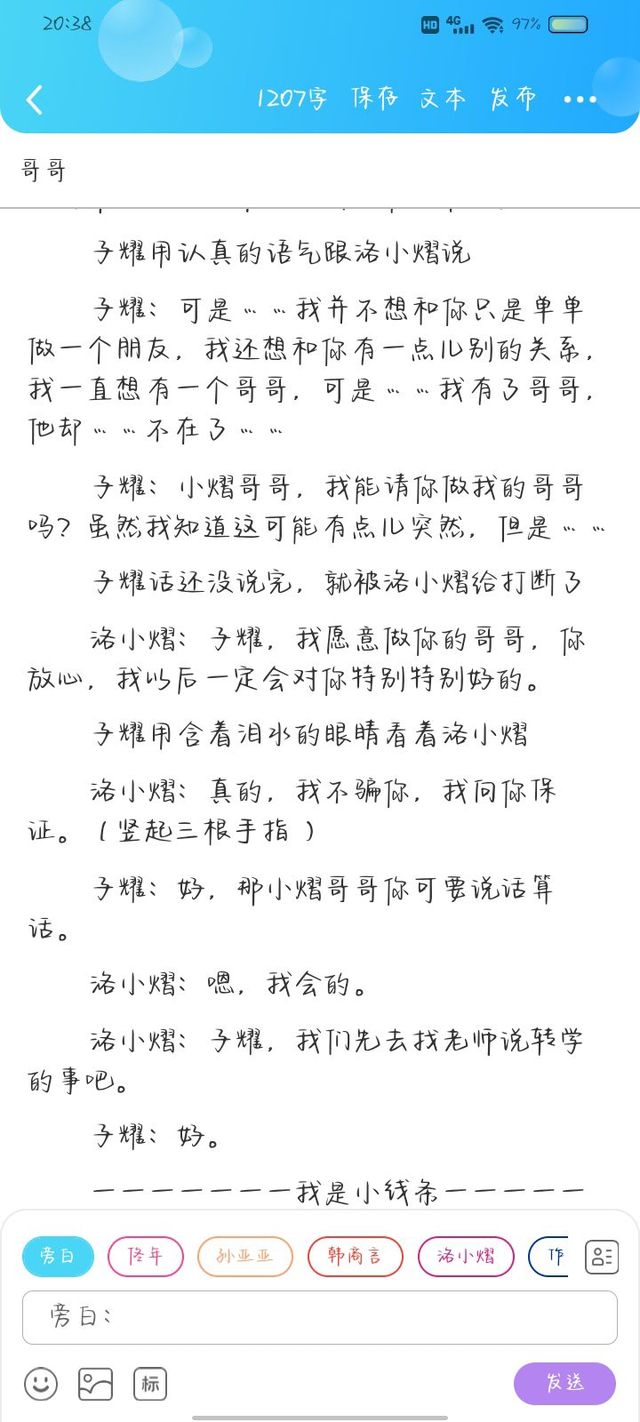 20:38
HD 4G 97%
1207字 保存 文本 发布
哥哥
子耀用认真的语气跟洛小熠说
子耀：可是……我并不想和你只是单单
做一个朋友，我还想和你有一点儿别的关系，
我一直想有一个哥哥，可是……我有了哥哥，
他却……不在了……
子耀：小熠哥哥，我能请你做我的哥哥
吗？虽然我知道这可能有点儿突然，但是……
子耀话还没说完，就被洛小熠给打断了
洛小熠：子耀，我愿意做你的哥哥，你
放心，我以后一定会对你特别特别好的。
子耀用含着泪水的眼睛看着洛小熠
洛小熠：真的，我不骗你，我向你保
证。（竖起三根手指）
子耀：好，那小熠哥哥你可要说话算
话。
洛小熠：嗯，我会的。
洛小熠：子耀，我们先去找老师说转学
的事吧。
子耀：好。
一一一一一一一我是小线条一一一一一
旁白 佟年 孙亚亚 韩商言 洛小熠
旁白：
标 发送